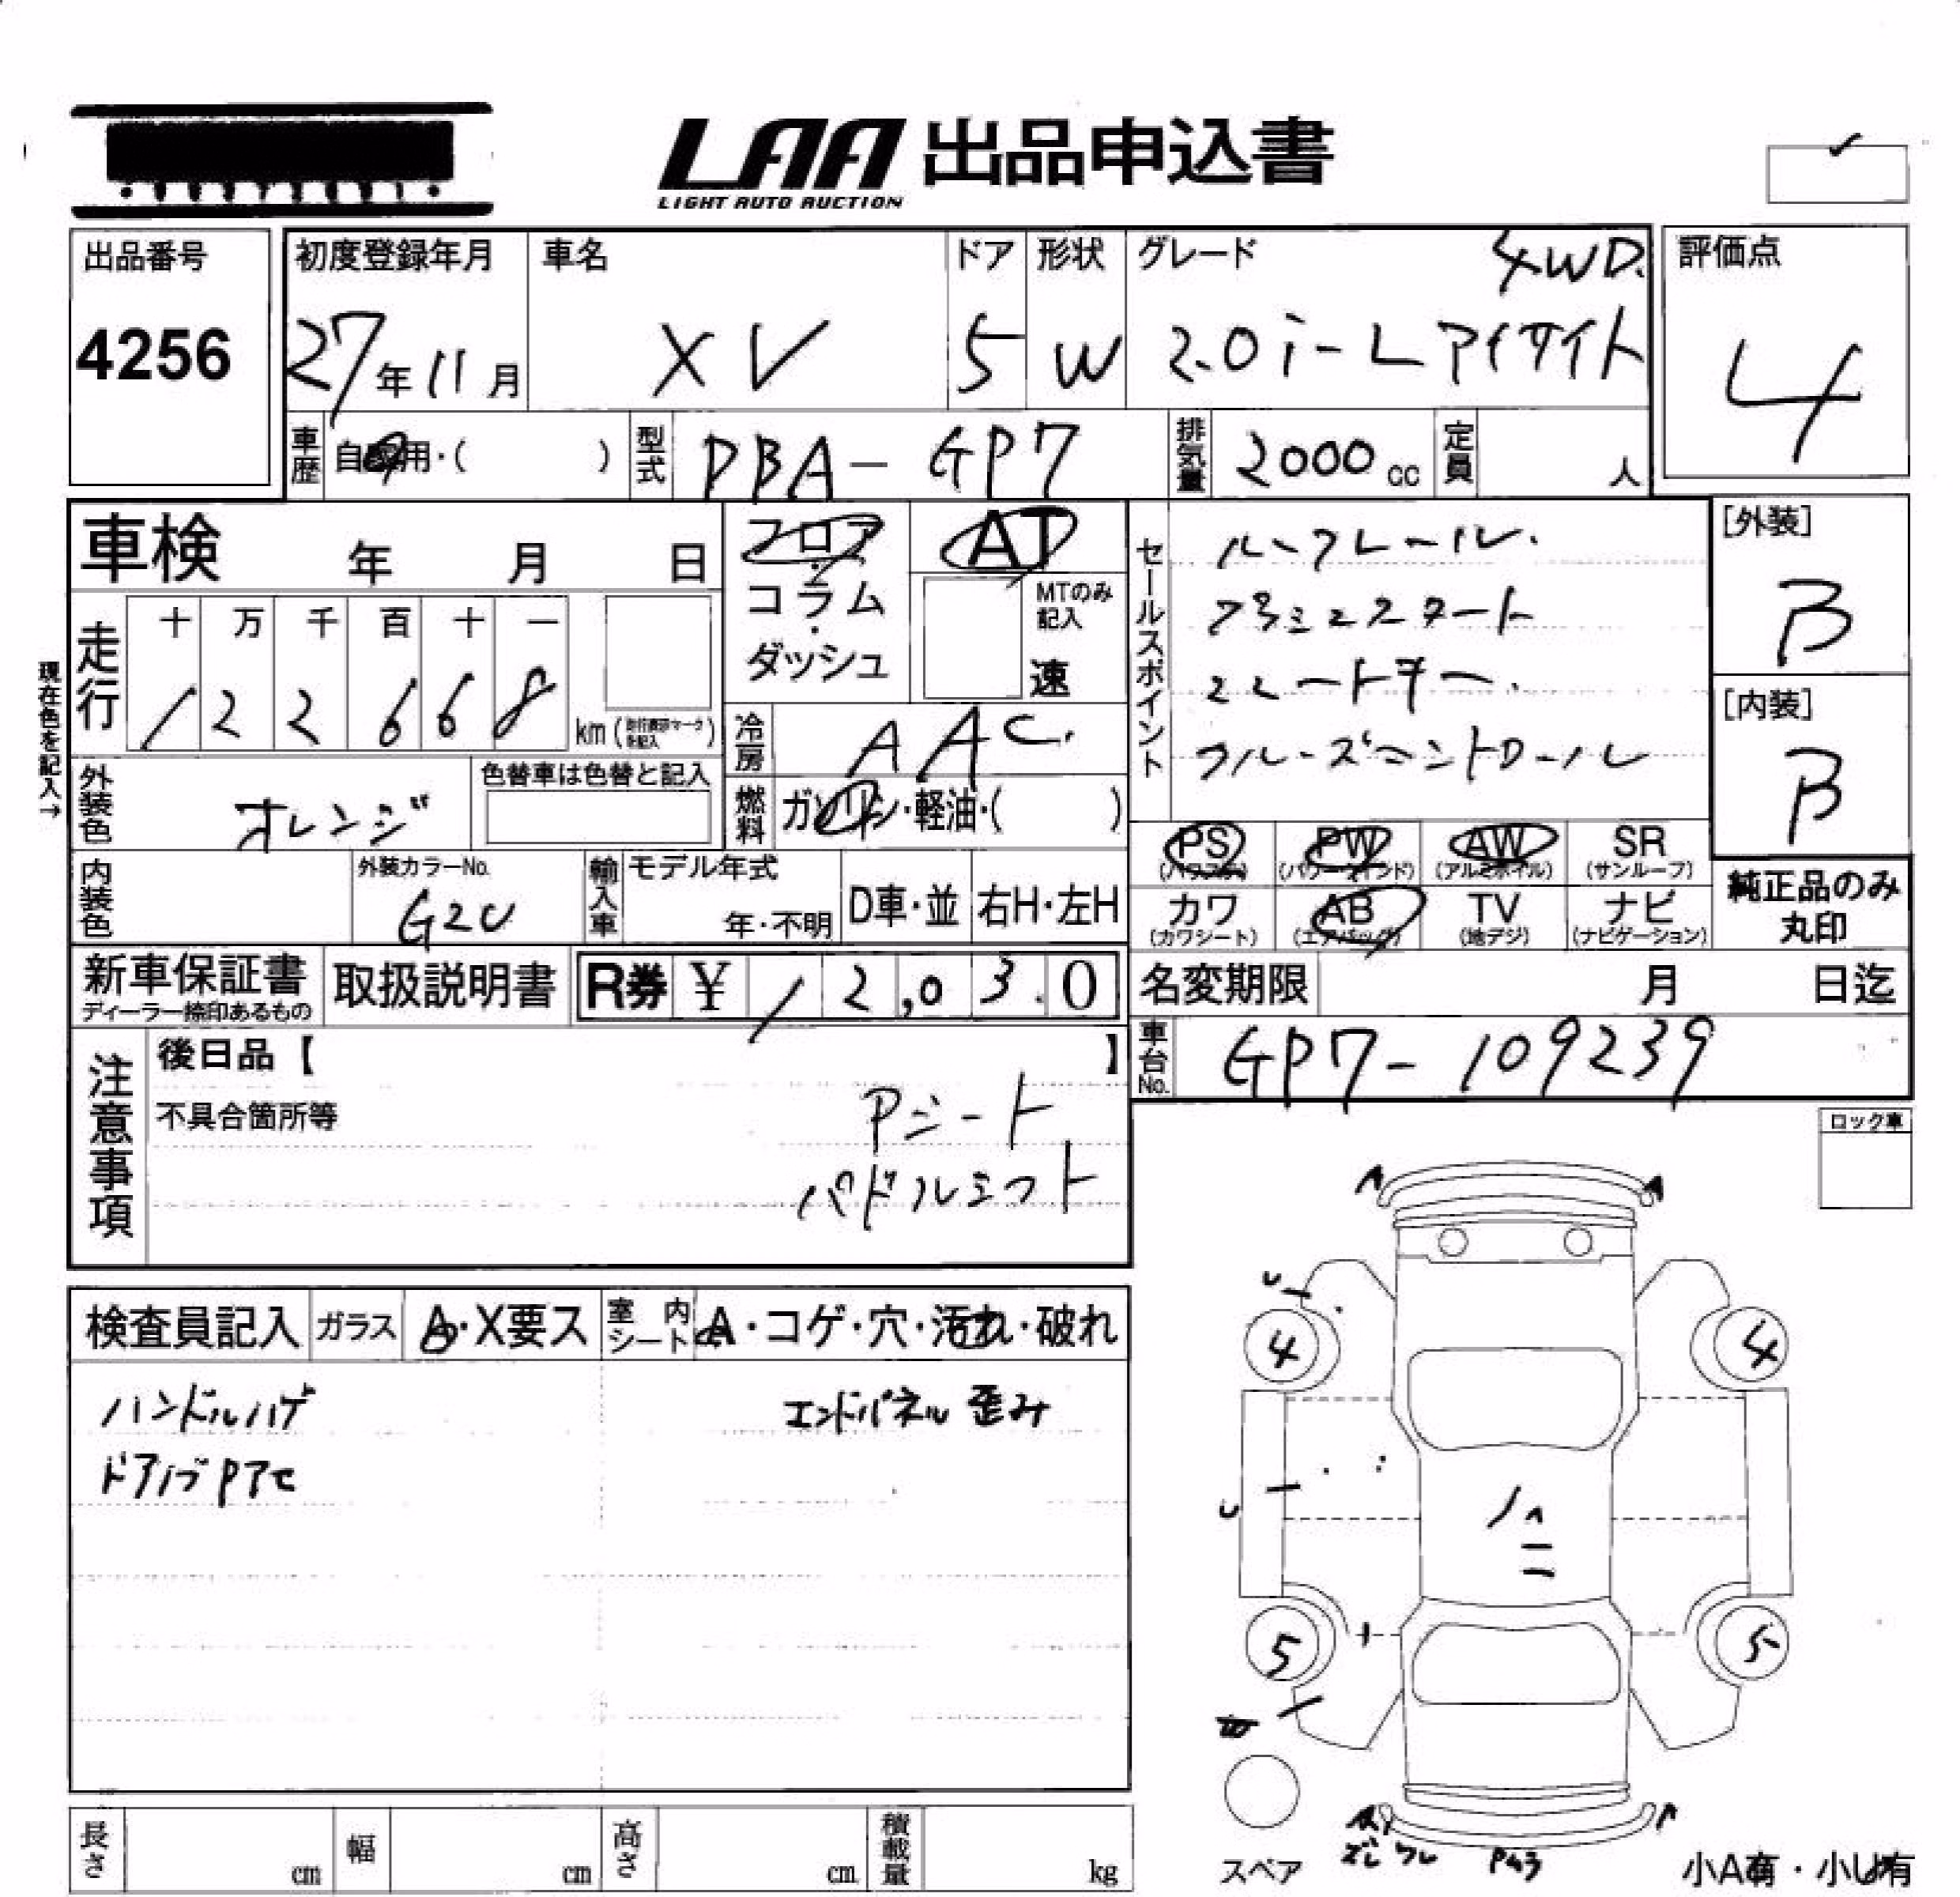 LAA 出品申込書
LIGHT AUTO AUCTION
出品番号
4256
初度登録年月
27年11月
車名
XV
ドア
5
形状
W
グレード
4WD.
2.0i-L アイサイト
評価点
4
車歴
自家用・( )
型式
DBA-GP7
排気量
2000cc
定員
人
車検 年 月 日
フロア・コラム・ダッシュ
AT
MTのみ記入
速
セールスポイント
ルーフレール.
プッシュスタート
スマートキー.
クルーズコントロール
[外装]
B
[内装]
B
現在色を記入→
走行
十 万 千 百 十 一
1 2 2 6 6 8
km
冷房
AAC.
外装色
オレンジ
色替車は色替と記入
燃料
ガソリン・軽油・( )
PS
(パワステ)
PW
(パワーウインド)
AW
(アルミホイル)
SR
(サンルーフ)
内装色
外装カラーNo.
G2U
輸入車
モデル年式
年・不明
D車・並
右H・左H
カワ
(カワシート)
AB
(エアバッグ)
TV
(地デジ)
ナビ
(ナビゲーション)
純正品のみ
丸印
新車保証書
ディーラー捺印あるもの
取扱説明書
R券 ¥ 12,030
名変期限 月 日迄
車台No.
GP7-109239
注意事項
後日品【 】
不具合箇所等
Pシート
パドルシフト
ロック車
検査員記入
ガラス
A・X要ス
室内シート
A・コゲ・穴・汚れ・破れ
ハンドルハゲ
エンドパネル 歪み
ドアノブPアセ
A A
U
4 4
U
ハヘ
5 5
スペア
A A
ズレ ワレ Pムラ
小A有・小U有
長さ cm
幅 cm
高さ cm
積載量 kg